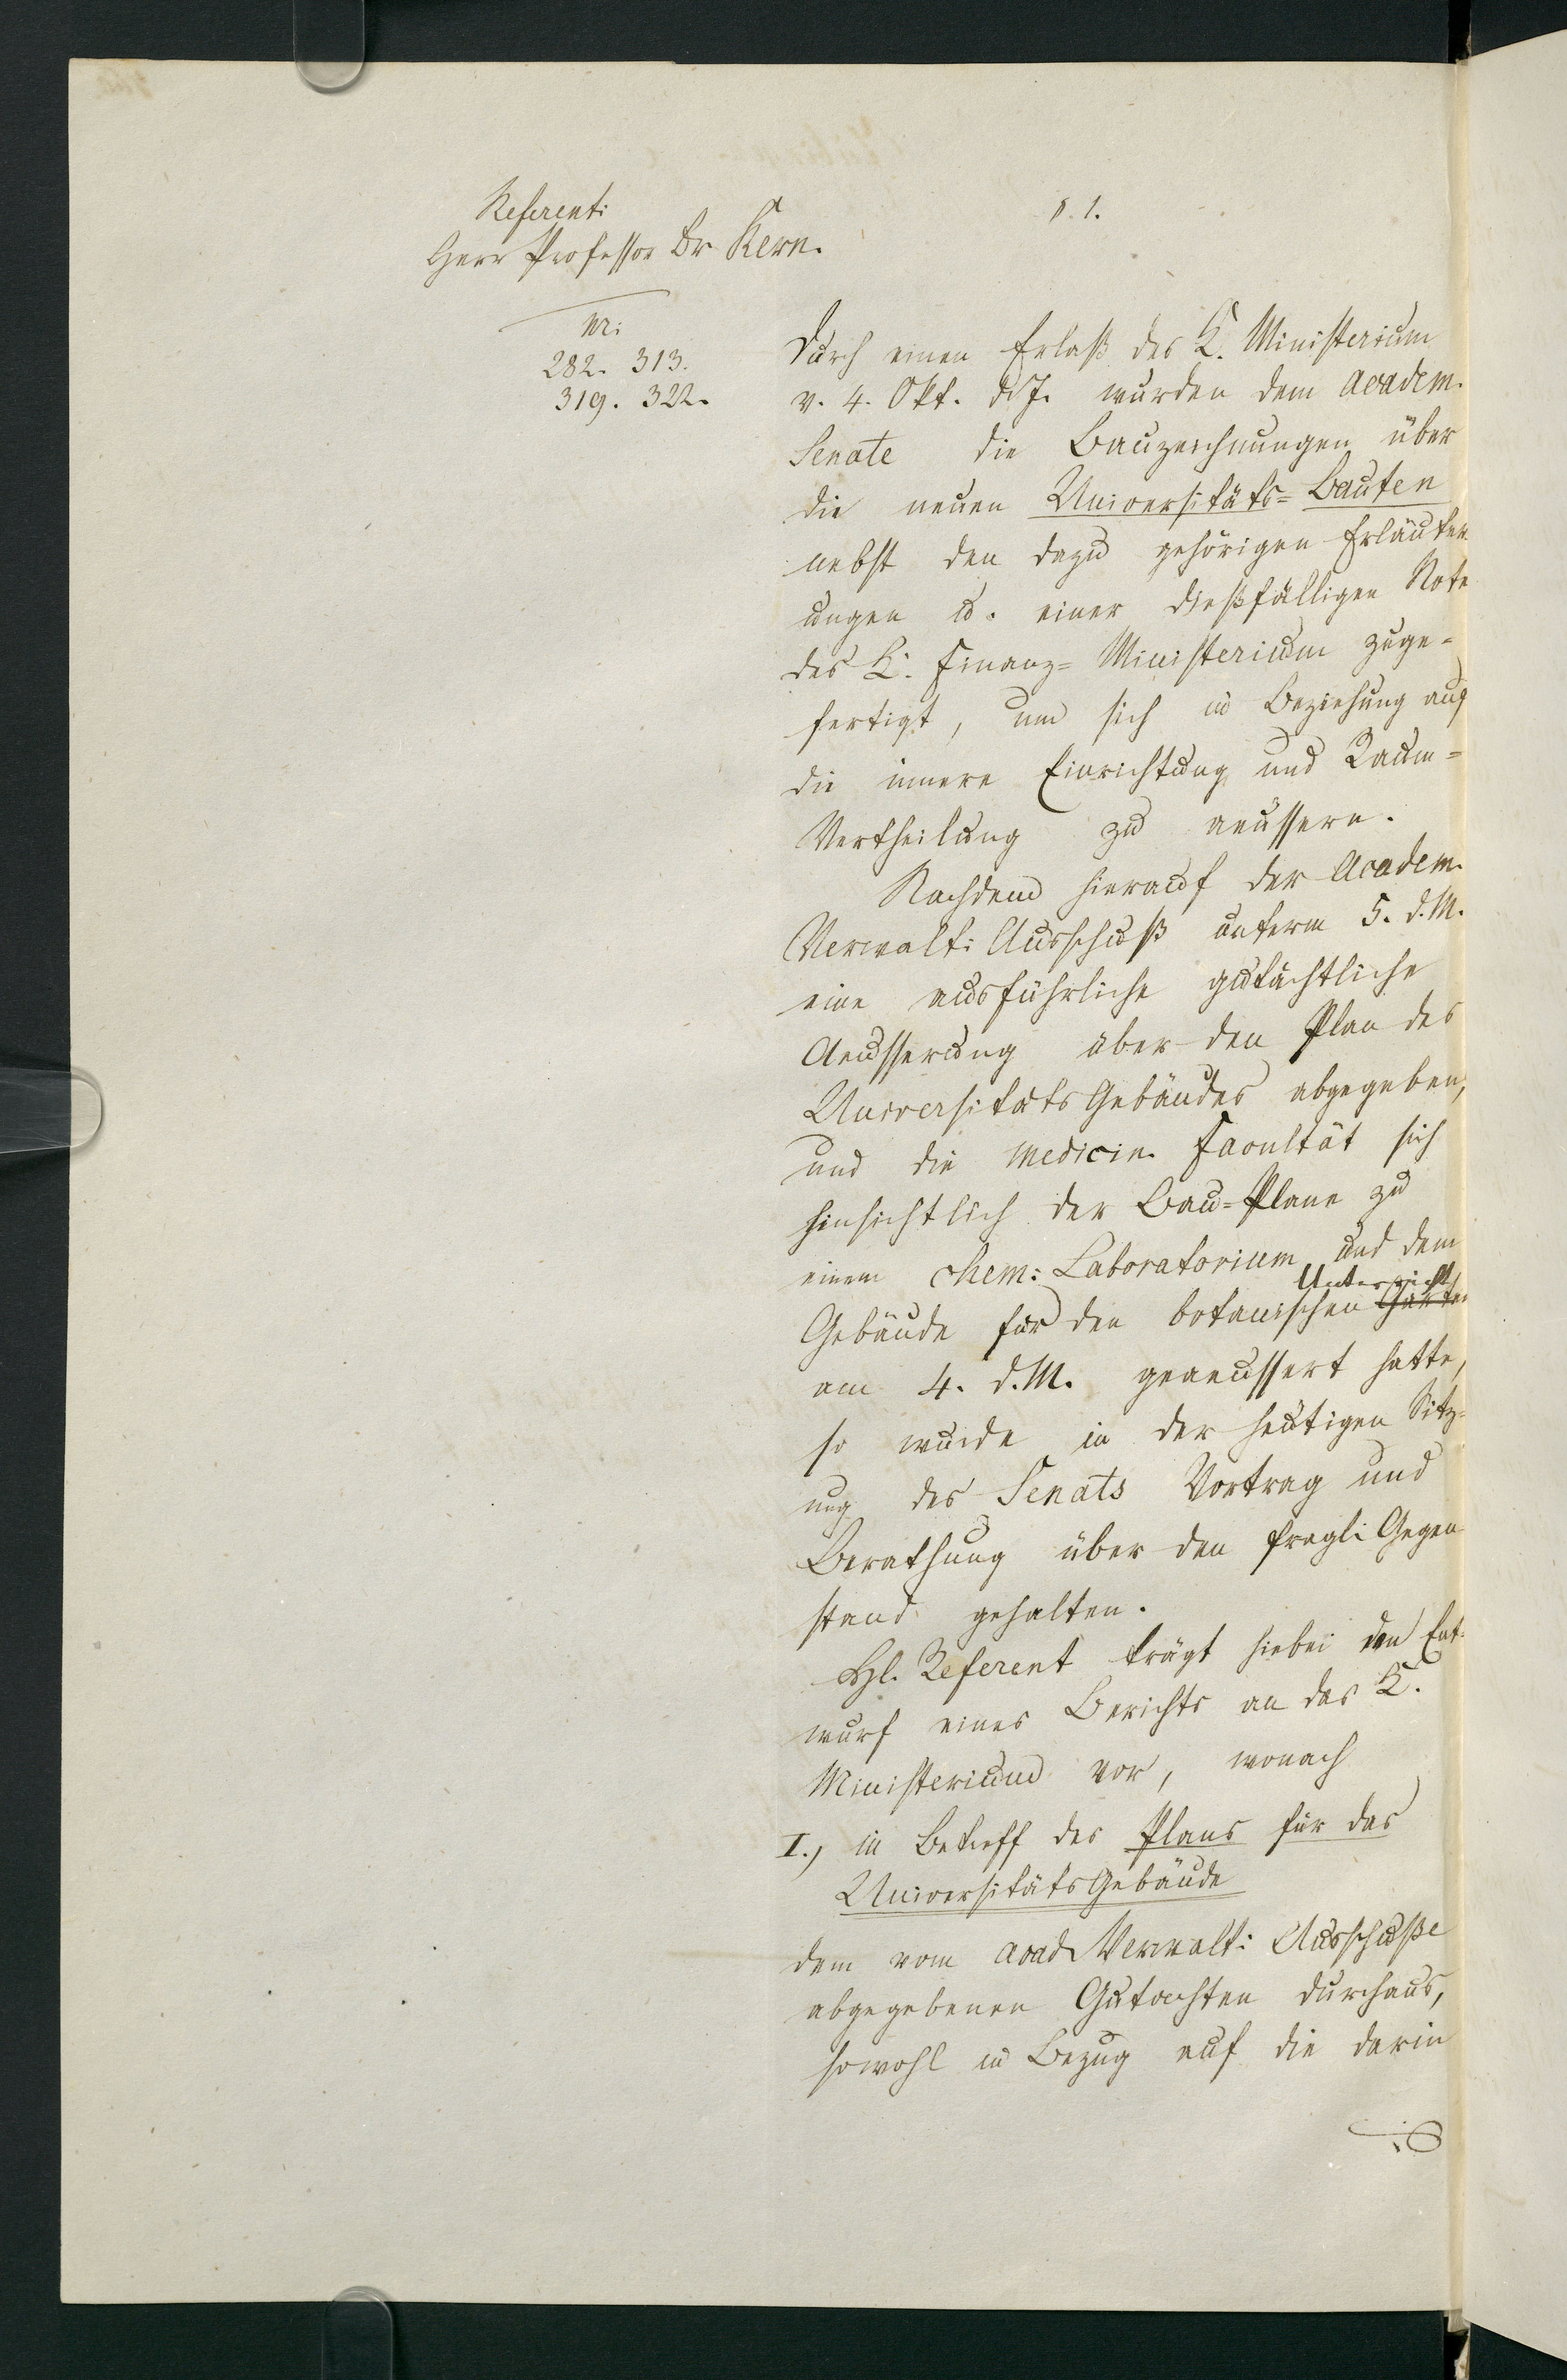 Referent:
Herr Professor Dr Kern.
Nr:
282. 313.
319. 322.
§. 1.
Durch einen Erlaß des K. Ministerium
v. 4. Okt. d. J. wurden dem academ.
Senate die Bauzeichnungen über
die neuen Universitäts=Bauten
nebst den dazu gehörigen Erläuter
ungen u. einer dießfälligen Note
des K. Finanz=Ministerium zuge=
fertigt, um sich in Beziehung auf
die innere Einrichtung und Raum=
Vertheilung zu aeussern.
Nachdem hierauf der Academ.
Verwalt: Ausschuß unterm 5. d. M.
eine ausführliche gutächtliche
Aeusserung über den Plan des
UniversitätsGebäudes abgegeben,
und die medicin. Facultät sich
hinsichtlich der Bau=Plane zu
einem chem: Laboratorium und dem
Unterricht
Gebäude für den botanischen Garten
am 4. d. M. geaeussert hatte,
so wurde in der heutigen Sitz=
ung des Senats Vortrag und
Berathung über den fragli: Gegen
stand gehalten.
Hl. Referent trägt hiebei den Ent=
wurf eines Berichts an das K.
Ministerium vor, wonach
I.) in Betreff des Plans für das
UniversitätsGebäude
dem vom acad. Verwalt: Ausschuße
abgegebenen Gutachten durchaus,
sowohl in Bezug auf die darin